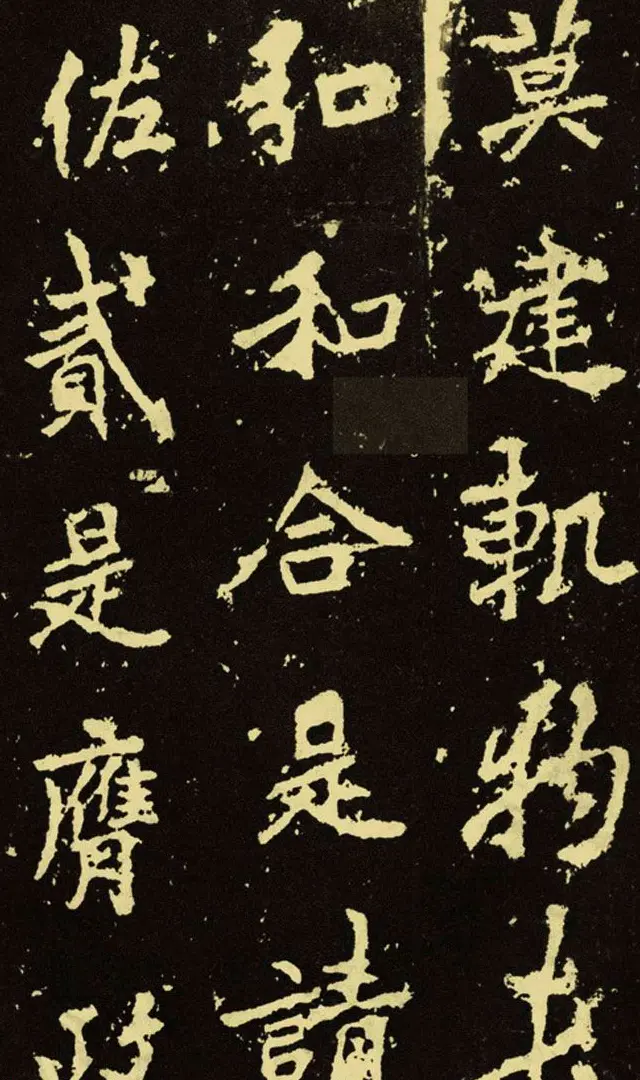 莫建軌物
和合是請
佐貳是膺